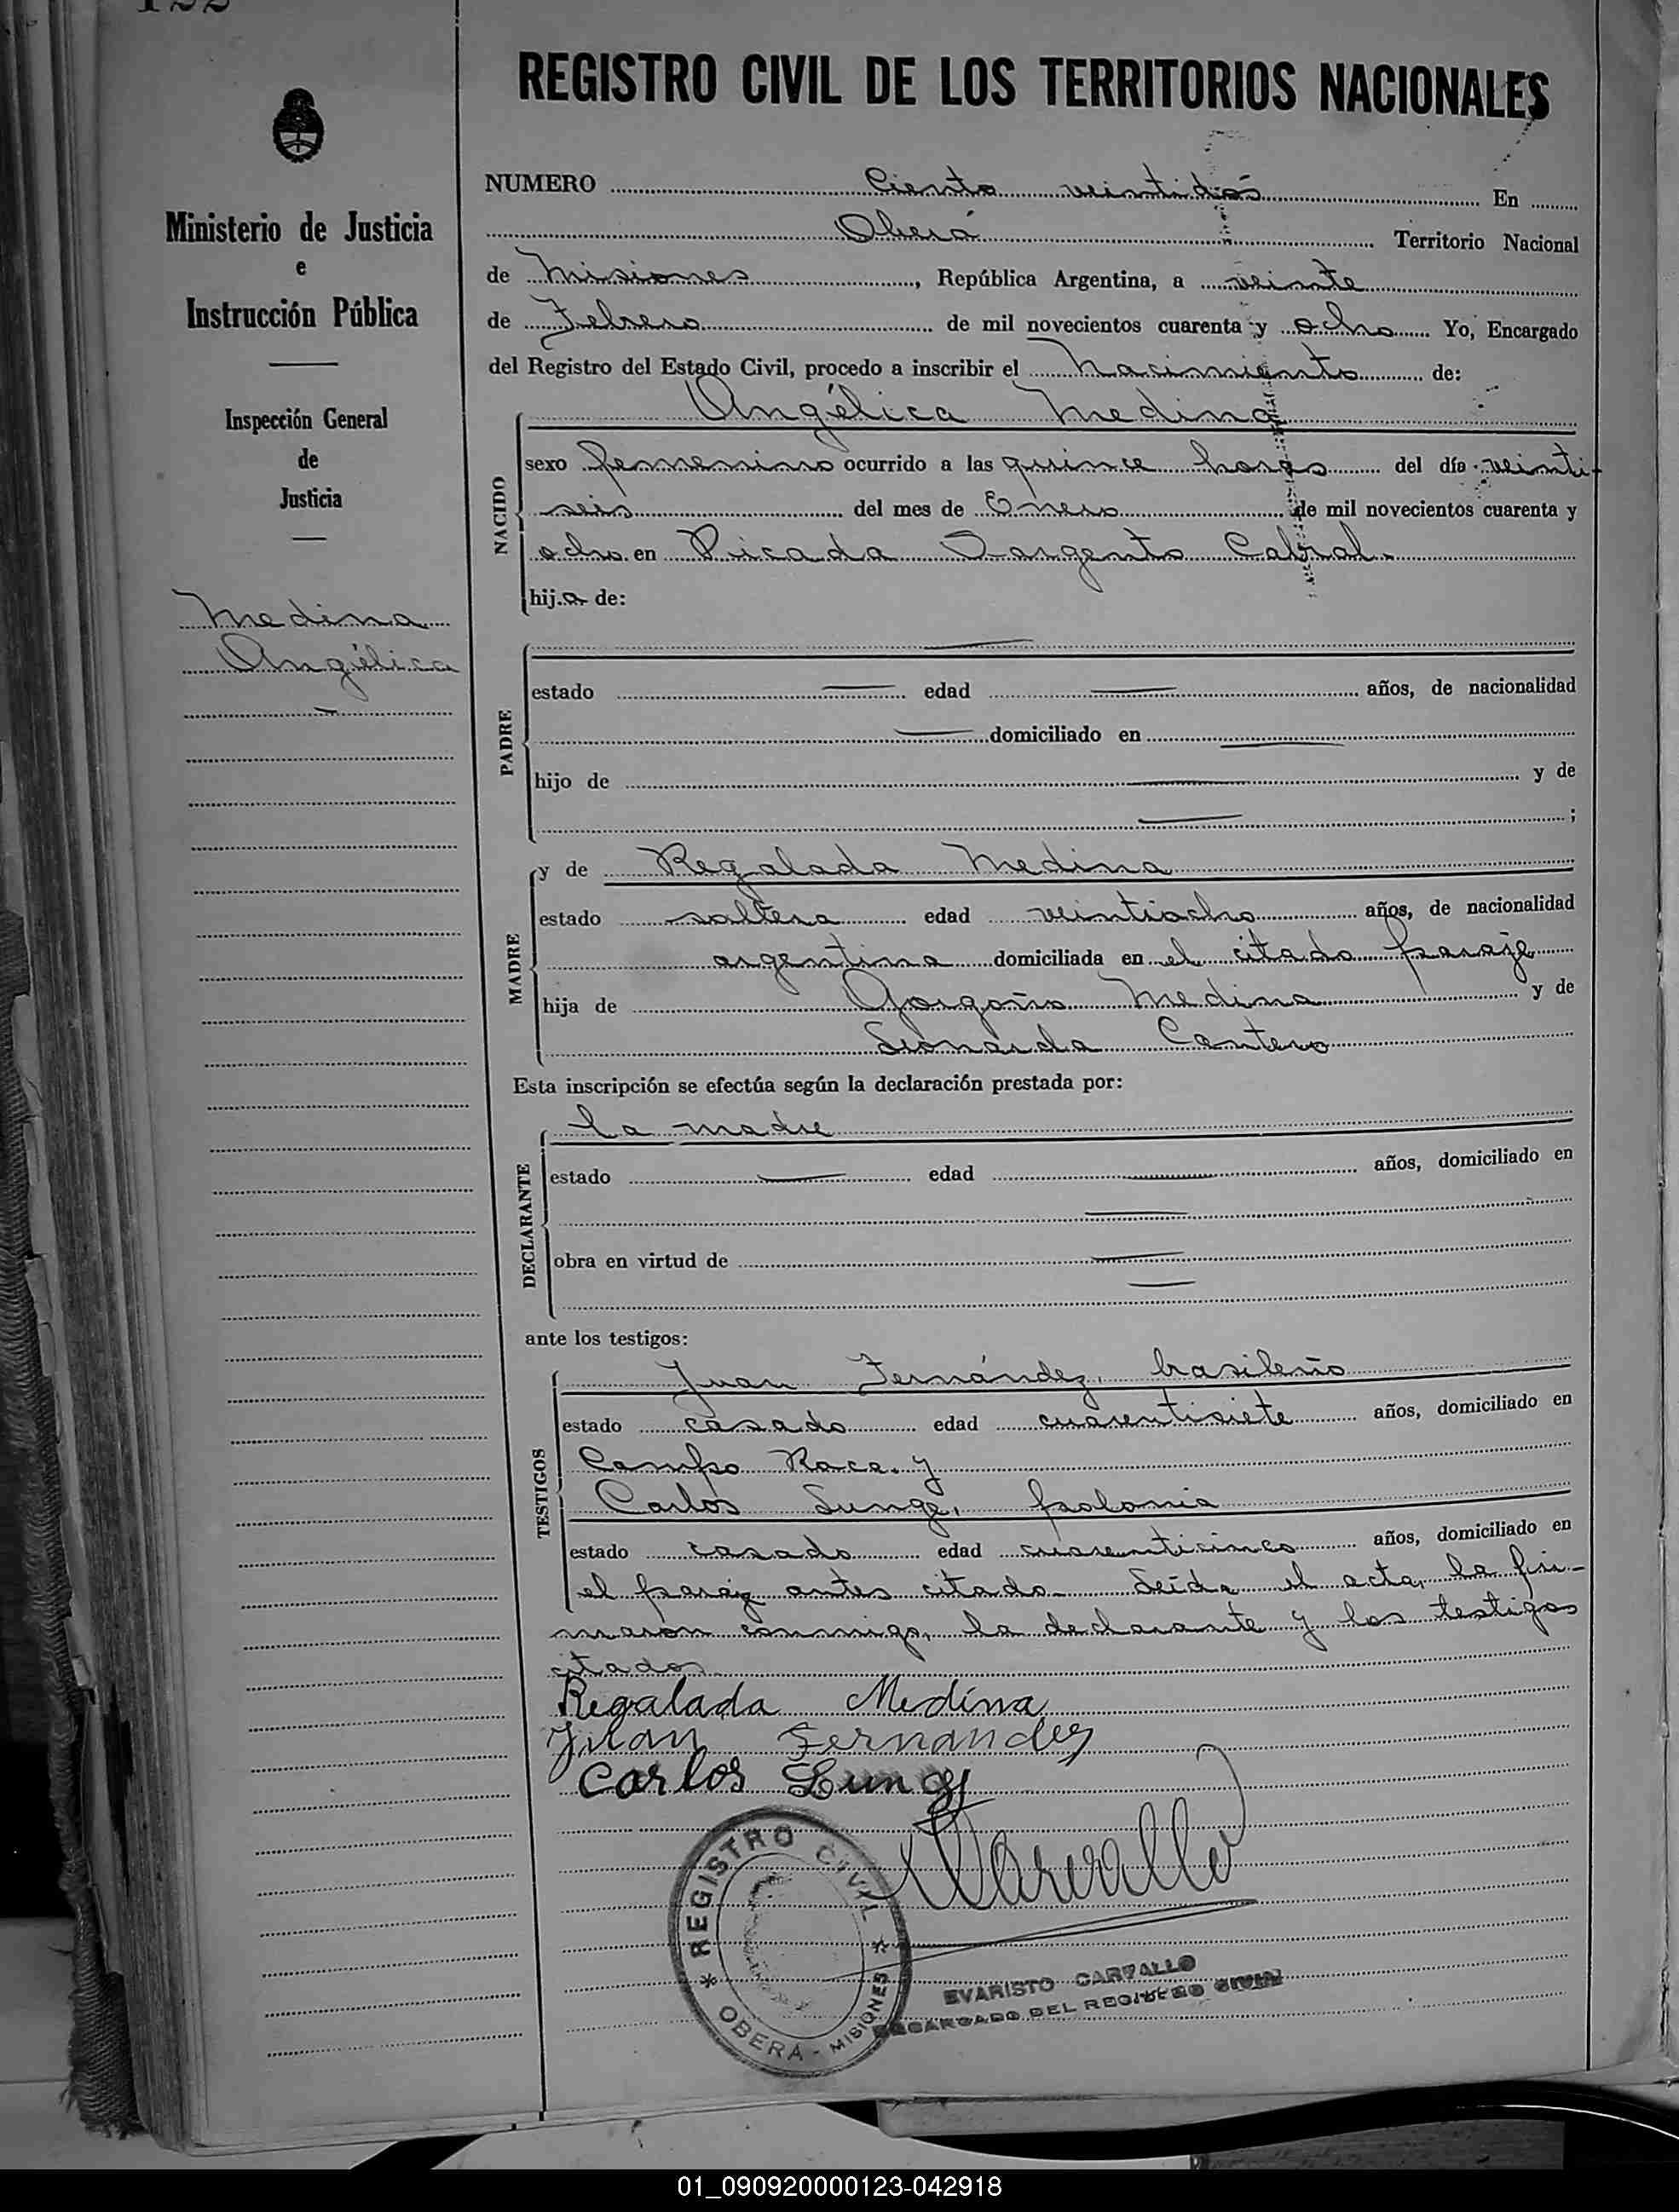 122
REGISTRO CIVIL DE LOS TERRITORIOS NACIONALES
Ministerio de Justicia
e
Instrucción Pública
Inspección General
de
Justicia
Medina
Angélica
NUMERO Ciento veintidós En
Oberá Territorio Nacional
de Misiones, República Argentina, a veinte
de Febrero de mil novecientos cuarenta y ocho Yo, Encargado
del Registro del Estado Civil, procedo a inscribir el nacimiento de:
NACIDO
Angélica Medina
sexo femenino ocurrido a las quince horas del día veinti-
seis del mes de Enero de mil novecientos cuarenta y
ocho en Picada Sargento Cabral.
hija de:
PADRE
estado edad años, de nacionalidad
domiciliado en
hijo de y de
;
MADRE
y de Regalada Medina
estado soltera edad veintiocho años, de nacionalidad
argentina domiciliada en el citado paraje
hija de Gorgoño Medina y de
Leonarda Cantero
Esta inscripción se efectúa según la declaración prestada por:
DECLARANTE
la madre
estado edad años, domiciliado en
obra en virtud de
ante los testigos:
TESTIGOS
Juan Fernández, brasileño
estado casado edad cuarentisiete años, domiciliado en
Campo Roca y
Carlos Lunge,
estado casado edad cuarenticinco años, domiciliado en
el paraje antes citado. Leída el acta, la fir-
maron conmigo, la declarante y los testigos
citados
Regalada Medina
Juan Fernandez
Carlos
Carvallo
REGISTRO CIVIL
OBERÁ - MISIONES
EVARISTO CARVALLO
ENCARGADO DEL REGISTRO CIVIL
01_090920000123-042918